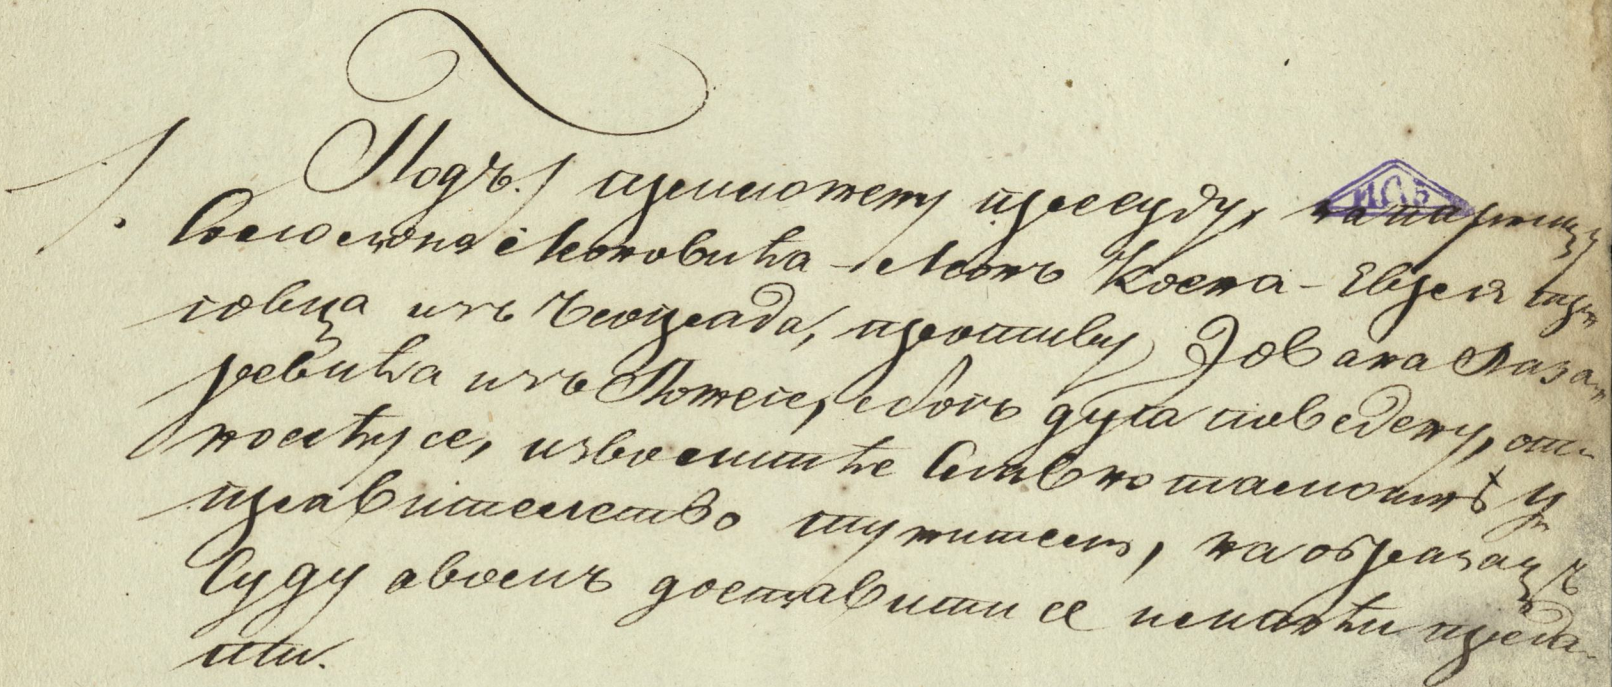 Подъ ./. приложену пресуду, на парницу
Соломона Моновића – Мошъ Коена – Еврея тр
говца изъ Београда, противу Јована Лаза
ревића изъ Пожеге, збогъ дуга поведену, от
носећусе, изволитће Главно таможно у
правителство тужителю, на образацъ
Суду овомъ доставити се имаюћи преда
ти.